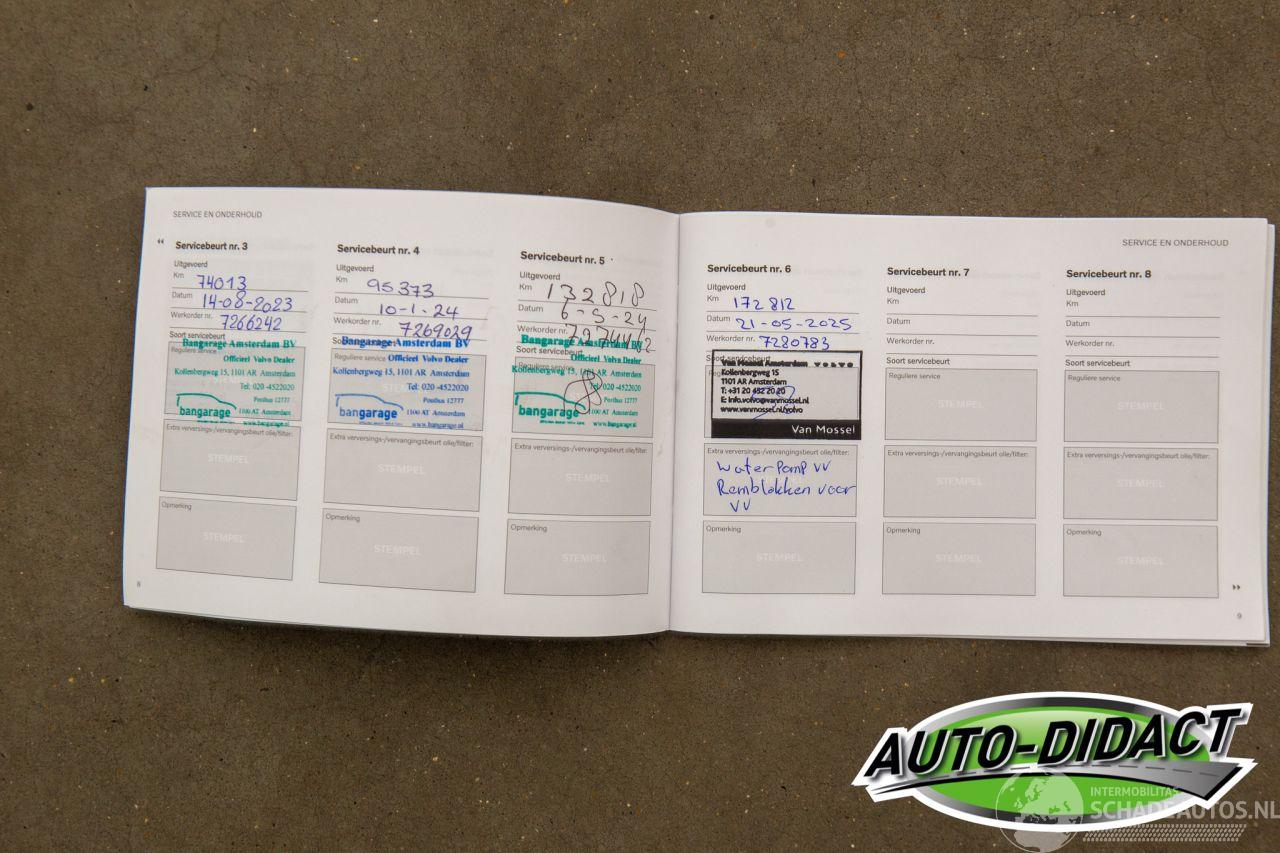 SERVICE EN ONDERHOUD
Servicebeurt nr. 3
Uitgevoerd
Km 74013
Datum 14-08-2023
Werkorder nr. 7266242
Soort servicebeurt
Reguliere service
Bangarage Amsterdam BV
Officieel Volvo Dealer
Kollenbergweg 15, 1101 AR Amsterdam
Tel: 020 -4522020
Postbus 12777
1100 AT Amsterdam
bangarage
www.bangarage.nl
Extra verversings-/vervangingsbeurt olie/filter:
STEMPEL
Opmerking
STEMPEL
8
Servicebeurt nr. 4
Uitgevoerd
Km 95373
Datum 10-1-24
Werkorder nr. 7269029
Bangarage Amsterdam BV
Reguliere service
Officieel Volvo Dealer
Kollenbergweg 15, 1101 AR Amsterdam
Tel: 020 -4522020
Postbus 12777
1100 AT Amsterdam
bangarage
www.bangarage.nl
Extra verversings-/vervangingsbeurt olie/filter:
STEMPEL
Opmerking
STEMPEL
Servicebeurt nr. 5
Uitgevoerd
Km 132818
Datum
Werkorder nr.
Bangarage Amsterdam BV
Soort servicebeurt
Reguliere service
Officieel Volvo Dealer
Kollenbergweg 15, 1101 AR Amsterdam
Tel: 020 -4522020
Postbus 12777
1100 AT Amsterdam
bangarage
www.bangarage.nl
Extra verversings-/vervangingsbeurt olie/filter:
STEMPEL
Opmerking
STEMPEL
SERVICE EN ONDERHOUD
Servicebeurt nr. 6
Uitgevoerd
Km 172 812
Datum 21-05-2025
Werkorder nr. 7280783
Soort servicebeurt
Van Mossel Amsterdam VOLVO
Kollenbergweg 15
1101 AR Amsterdam
T: +31 20 452 20 20
E: info.volvo@vanmossel.nl
www.vanmossel.nl/volvo
Van Mossel
Extra verversings-/vervangingsbeurt olie/filter:
waterpomp vv
Remblokken voor
vv
Opmerking
STEMPEL
Servicebeurt nr. 7
Uitgevoerd
Km
Datum
Werkorder nr.
Soort servicebeurt
Reguliere service
STEMPEL
Extra verversings-/vervangingsbeurt olie/filter:
STEMPEL
Opmerking
STEMPEL
Servicebeurt nr. 8
Uitgevoerd
Km
Datum
Werkorder nr.
Soort servicebeurt
Reguliere service
STEMPEL
Extra verversings-/vervangingsbeurt olie/filter:
STEMPEL
Opmerking
STEMPEL
9
AUTO-DIDACT
INTERMOBILITAS
SCHADEAUTOS.NL